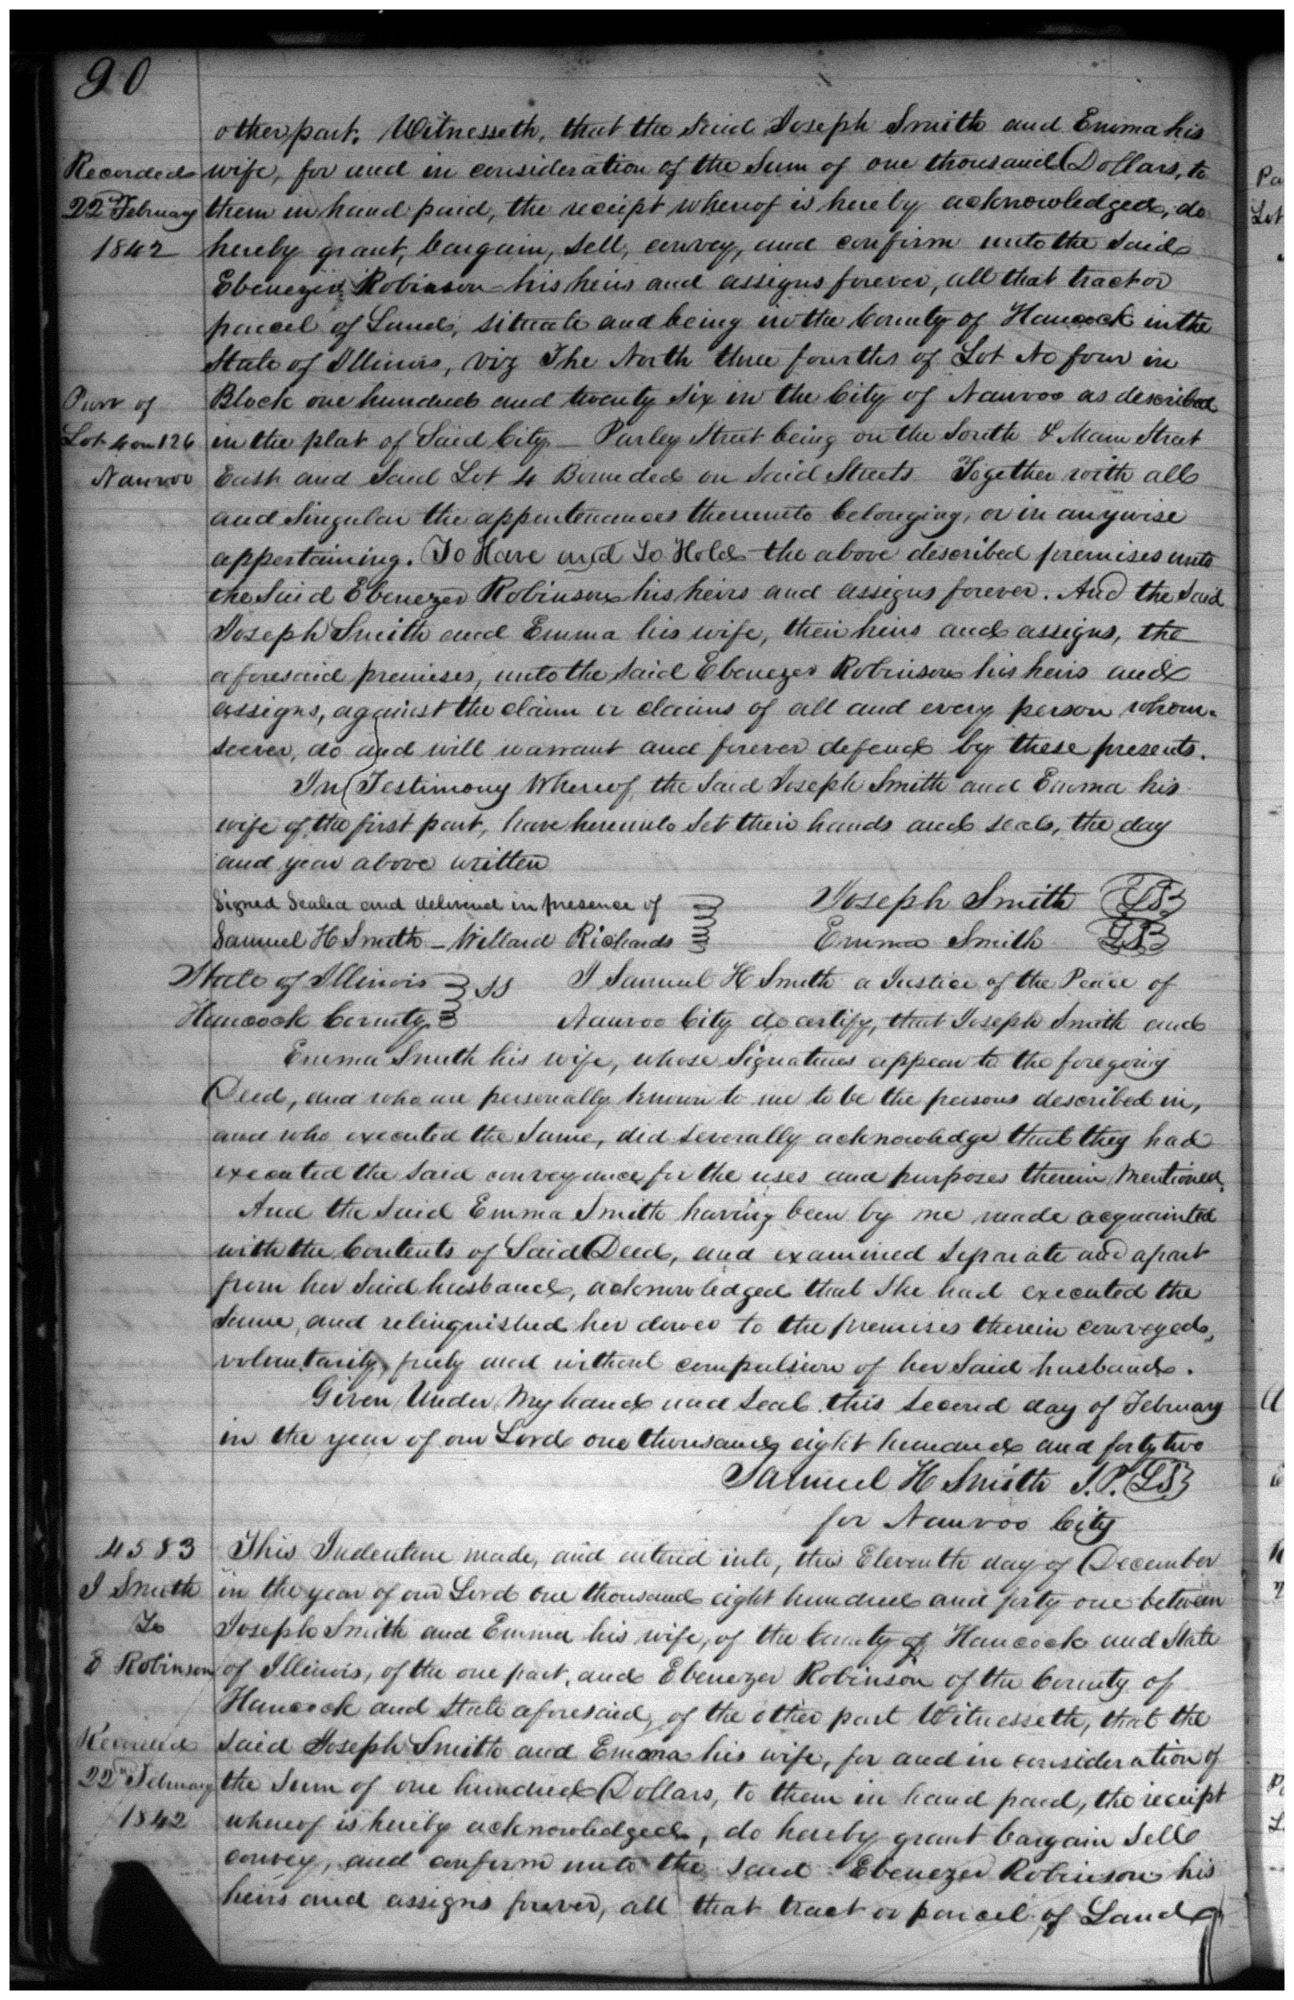 90
other part. Witnesseth, that the Said Joseph Smith and Emma his
Recorded wife, for and in consideration of the Sum of one thousand Dollars, to
22d February them in hand paid, the reciept whereof is hereby acknowledged, do
1842 hereby grant, bargain, Sell, convey, and confirm unto the Said
Ebenezer Robinson his heirs and assigns forever, all that tract or
parcel of Land, situate and being in the County of Hancock in the
State of Illinois, viz The North three fourths of Lot No four in
Part of Block one hundred and twenty six in the City of Nauvoo as described
Lot 4 on 126 in the plat of Said City — Parley Street being on the South & Main Street
Nauvoo East and Said Lot 4 Bounded on Said Streets Together with all
and Singular the appurtenances thereunto belonging, or in anywise
appertaining. To Have and To Hold the above described premises unto
the Said Ebenezer Robinson his heirs and assigns forever. And the Said
Joseph Smith and Emma his wife, their heirs and assigns, the
aforesaid premises, unto the Said Ebenezer Robinson his heirs and
assigns, against the claim or claims of all and every person whom-
soever, do and will warrant and forever defend by these presents.
In Testimony Whereof, the Said Joseph Smith and Emma his
wife of the first part, have hereunto Set their hands and seals, the day
and year above written
Signed Sealed and delivered in presence of Joseph Smith LS
Samuel H Smith — Willard Richards Emma Smith LS
State of Illinois SS I Samuel H Smith a Justice of the Peace of
Hancock County Nauvoo City do certify, that Joseph Smith and
Emma Smith his wife, whose Signatures appear to the foregoing
Deed, and who are personally known to me to be the persons described in,
and who executed the Same, did Severally acknowledge that they had
executed the Said conveyance for the uses and purposes therein Mentioned.
And the Said Emma Smith having been by me made acquainted
with the Contents of Said Deed, and examined Seperate and apart
from her Said husband, acknowledged that She had executed the
Same, and relinquished her dower to the premises therein conveyed,
voluntarily, freely and without compulsion of her Said husband.
Given Under My hand and Seal this Second day of February
in the year of our Lord one thousand eight hundred and forty two
Samuel H Smith J.P. LS
for Nauvoo City
4583 This Indenture made, and entered into, this Eleventh day of December
J Smith in the year of our Lord one thousand eight hundred and forty one between
To Joseph Smith and Emma his wife, of the County of Hancock and State
E Robinson of Illinois, of the one part, and Ebenezer Robinson of the County of
Hancock and State aforesaid, of the other part Witnesseth, that the
Recorded Said Joseph Smith and Emma his wife, for and in consideration of
22d February the Sum of one hundred Dollars, to them in hand paid, the reciept
1842 whereof is hereby acknowledged, do hereby grant bargain Sell
convey, and confirm unto the Said Ebenezer Robinson his
heirs and assigns forever, all that tract or parcel of Land